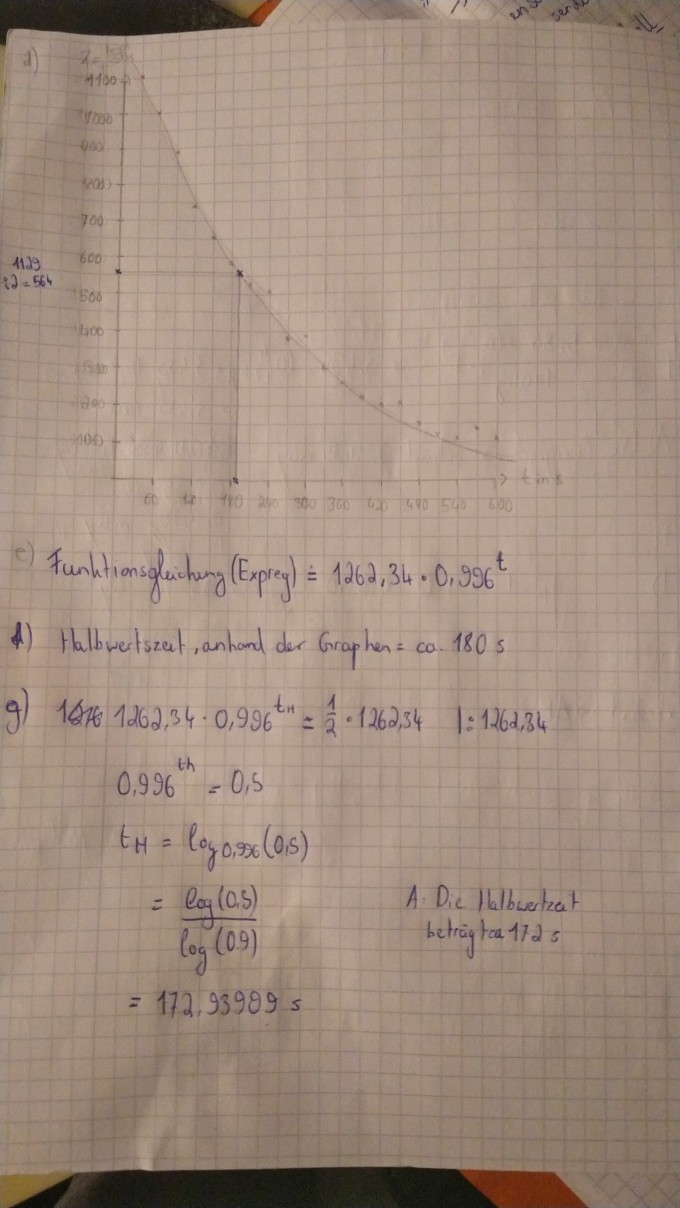 d)
1100
1000
900
800
700
600
1129
:2 = 564
500
400
300
200
100
60 180 240 300 360 420 480 540 600 t in s
e) Funktionsgleichung (Expreg) = 1262,34 · 0,996^t
f) Halbwertszeit, anhand der Graphen = ca. 180 s
g) 1262,34 · 0,996^tH = 1/2 · 1262,34 |: 1262,34
0,996^th = 0,5
tH = log0,996(0,5)
= log(0,5)
log(0.9)
A. Die Halbwertzeit
beträgt ca 172 s
= 172,93989 s